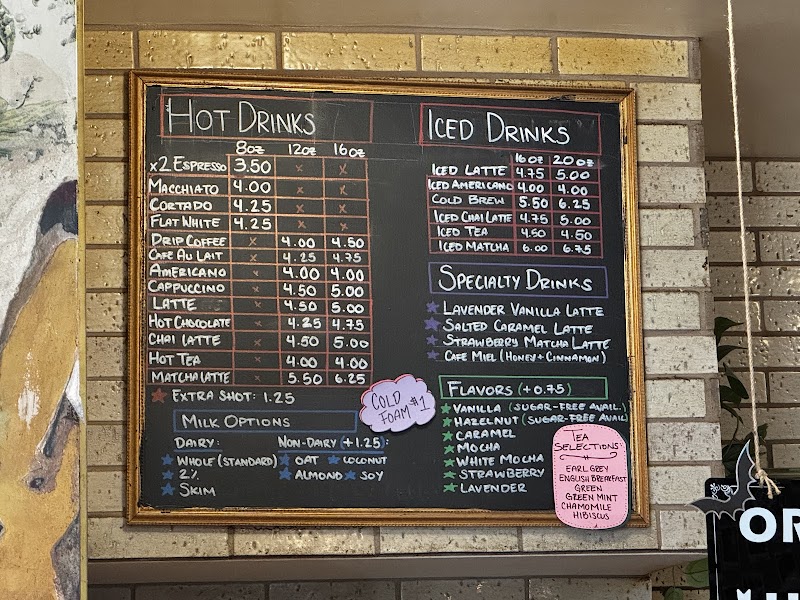 HOT DRINKS
8oz 12oz 16oz
x2 ESPRESSO 3.50 x x
MACCHIATO 4.00 x x
CORTADO 4.25 x x
FLAT WHITE 4.25 x x
DRIP COFFEE x 4.00 4.50
CAFE AU LAIT x 4.25 4.75
AMERICANO x 4.00 4.00
CAPPUCCINO x 4.50 5.00
LATTE x 4.50 5.00
HOT CHOCOLATE x 4.25 4.75
CHAI LATTE x 4.50 5.00
HOT TEA x 4.00 4.00
MATCHA LATTE x 5.50 6.25
EXTRA SHOT: 1.25
MILK OPTIONS
DAIRY: NON-DAIRY (+1.25):
WHOLE (STANDARD) OAT COCONUT
2% ALMOND SOY
SKIM
COLD
FOAM $1
ICED DRINKS
16oz 20oz
ICED LATTE 4.75 5.00
ICED AMERICANO 4.00 4.00
COLD BREW 5.50 6.25
ICED CHAI LATTE 4.75 5.00
ICED TEA 4.50 4.50
ICED MATCHA 6.00 6.75
SPECIALTY DRINKS
LAVENDER VANILLA LATTE
SALTED CARAMEL LATTE
STRAWBERRY MATCHA LATTE
CAFE MIEL (HONEY + CINNAMON)
FLAVORS (+0.75)
VANILLA (SUGAR-FREE AVAIL.)
HAZELNUT (SUGAR-FREE AVAIL)
CARAMEL
MOCHA
WHITE MOCHA
STRAWBERRY
LAVENDER
TEA
SELECTIONS:
EARL GREY
ENGLISH BREAKFAST
GREEN
GREEN MINT
CHAMOMILE
HIBISCUS
OR